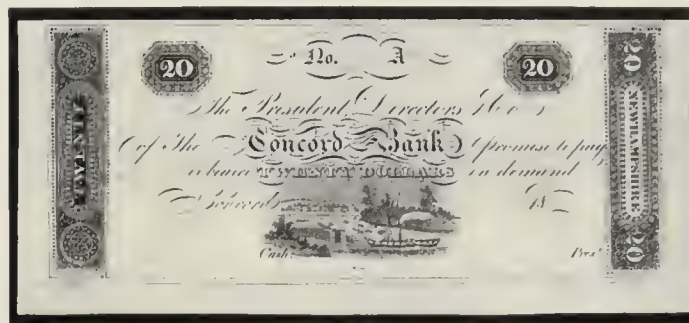 No. A
20
20
The President Directors & Co.
of The Concord Bank promise to pay
TWENTY DOLLARS on demand
Concord 18
Cash.r
Pres.t
TWENTY
20
NEWHAMPSHIRE
20